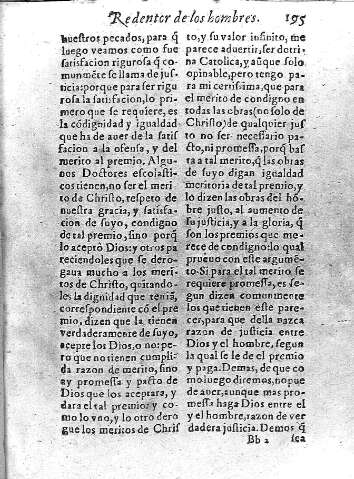 Redentor de los hombres. 195
nuestros pecados, para q̃
luego veamos como fue
satisfacion rigurosa q̃ co-
munmẽte se llama de jus-
ticia: porque para ser rigu
rosa la satisfacion, lo pri-
mero que se requiere, es
la cõdignidad y igualdad
que ha de auer de la satis
facion a la ofensa, y del
merito al premio. Algu-
nos Doctores escolasti-
cos tienen, no ser el meri-
to de Christo, respeto de
nuestra gracia, y satisfa-
cion de suyo, condigno
de tal premio, sino porq̃
lo aceptò Dios: y otros pa
reciendoles que se dero-
gaua mucho a los meri-
tos de Christo, quitando-
les la dignidad que teniã,
correspondiente cõ el pre
mio, dizen que la tienen
verdaderamente de suyo,
acepte los Dios, o no: pe-
ro que no tienen cumpli-
da razon de merito, sino
ay promessa y pacto de
Dios que los aceptara, y
dara el tal premio: y co-
mo lo vno, y lo otro dero
gue los meritos de Chris
to, y su valor infinito, me
parece aduertir, ser dotri-
na Catolica, y aũque solo
opinable, pero tengo pa-
ra mi certissima, que para
el merito de condigno en
todas las obras (no solo de
Christo) de qualquier jus
to no ser necessario pa-
cto, ni promessa, porq̃ bas
ta a tal merito, q̃ las obras
de suyo digan igualdad
meritoria de tal premio, y
lo dizen las obras del hõ-
bre justo, al aumento de
su justicia, y a la gloria, q̃
son los premios que me-
rece de condigno: lo qual
prueuo con este argumẽ-
to. Si para el tal merito se
requiere promessa, es se-
gun dizen comunmente
los que tienen este pare-
cer, para que della nazca
razon de justicia entre
Dios y el hombre, segun
la qual se le de el premio
y paga. Demas, de que co
mo luego diremos, no pue
de auer, aunque mas pro-
messa haga Dios entre el
y el hombre, razon de ver
dadera justicia. Demos q̃
Bb 2 sea